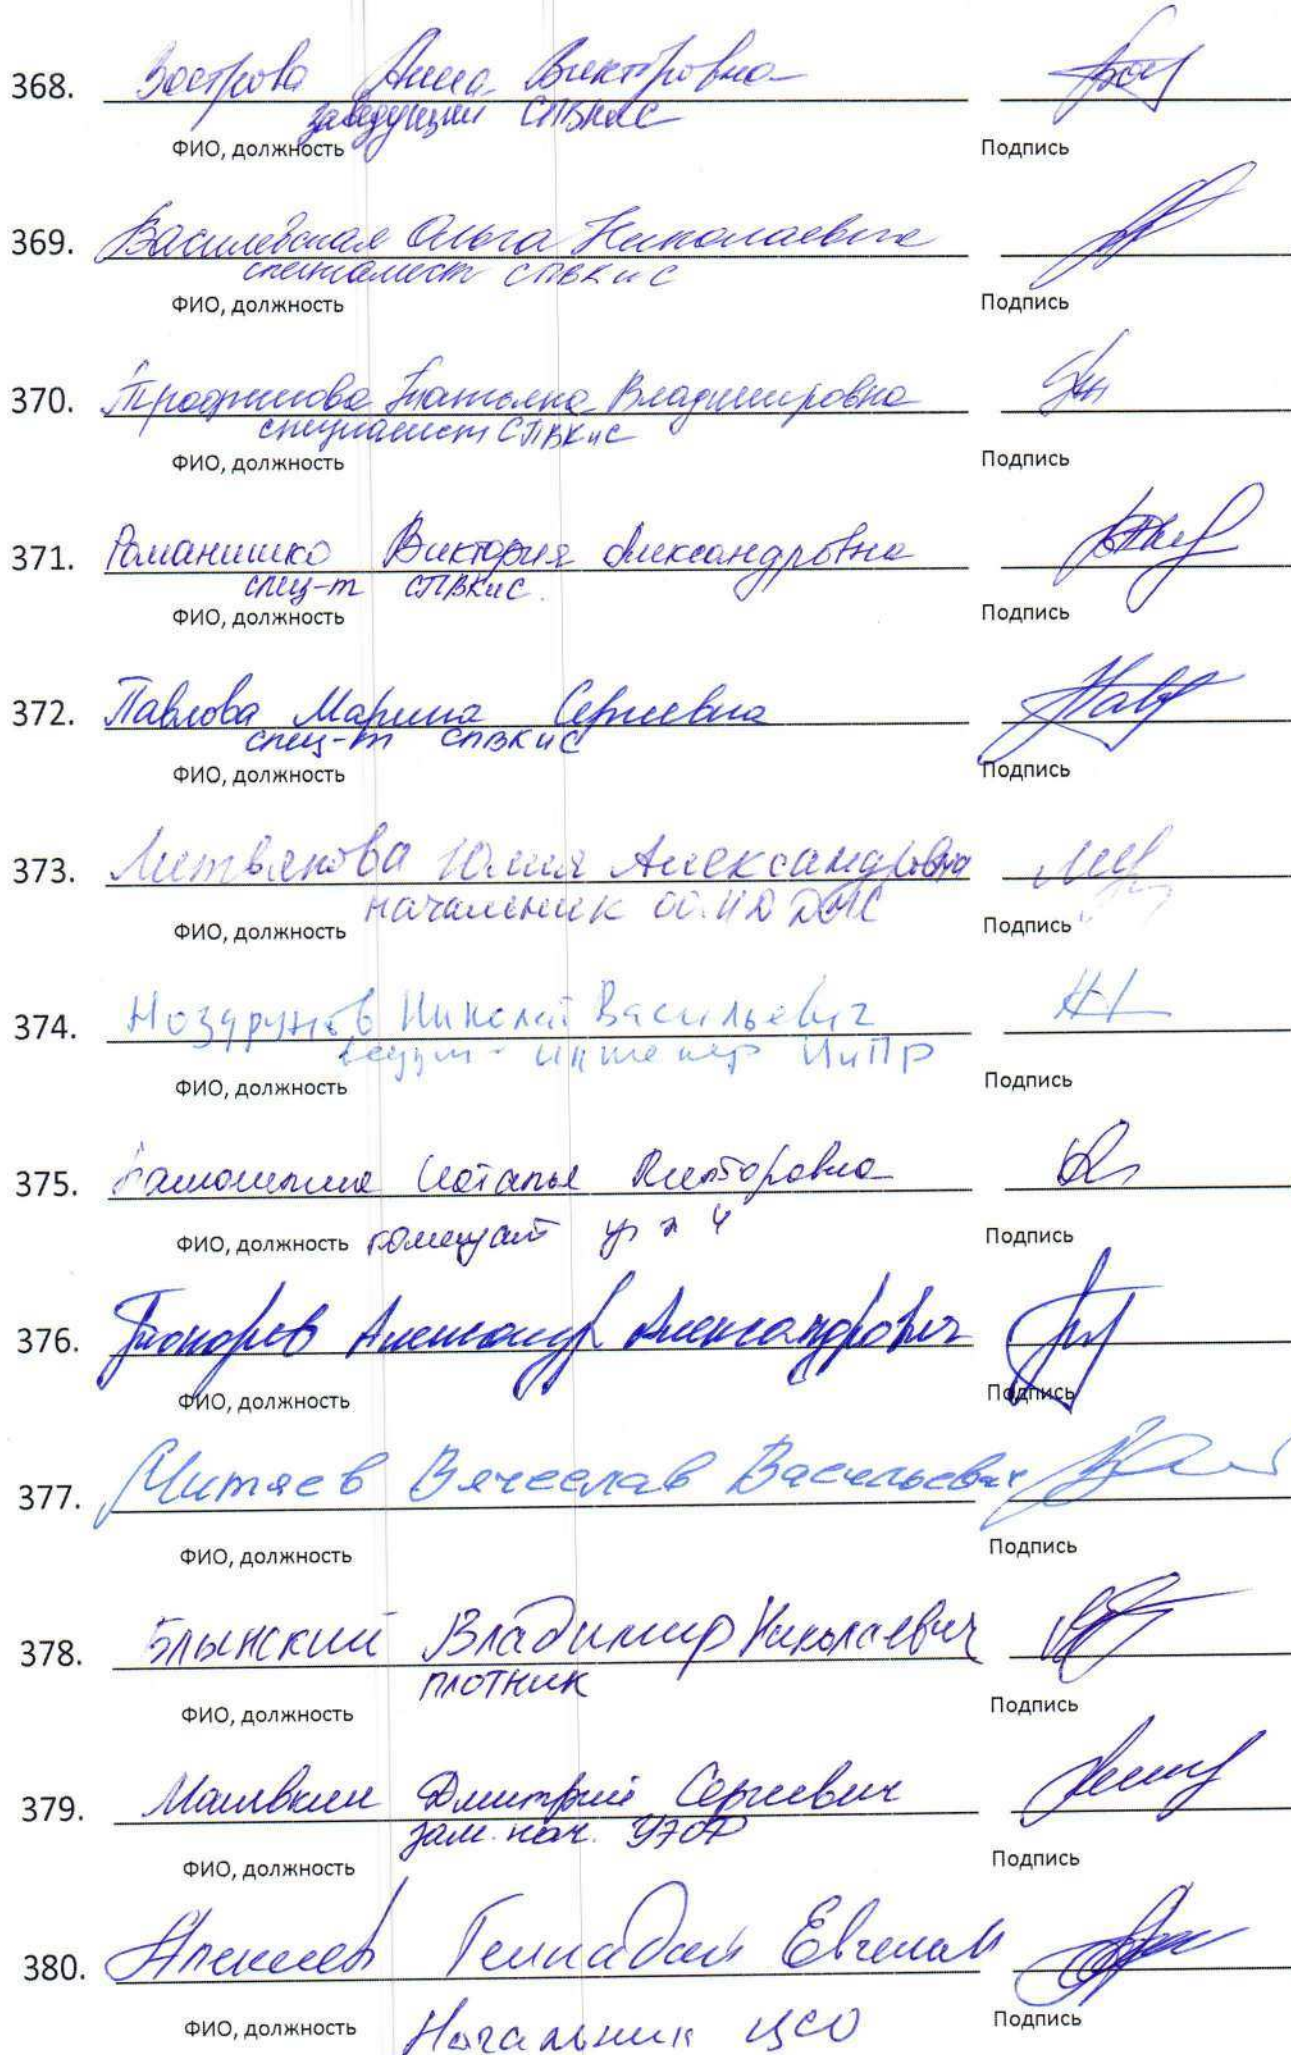 368. Вострова Анна Викторовна
заведующий СПВКиС
ФИО, должность Подпись
369. Василевская Ольга Николаевна
специалист СПВКиС
ФИО, должность Подпись
370. Татьяна Владимировна
специалист СПВКиС
ФИО, должность Подпись
371. Романишко Виктория Александровна
спец-т СПВКиС.
ФИО, должность Подпись
372. Павлова Марина Сергеевна
спец-т СПВКиС
ФИО, должность Подпись
373. Литвякова Юлия Александровна
начальник
ФИО, должность Подпись
374. Николай Васильевич
инженер
ФИО, должность Подпись
375. Наталья Викторовна
ФИО, должность Подпись
376. Александр Александрович
ФИО, должность Подпись
377. Митяев Вячеслав Васильевич
ФИО, должность Подпись
378. Блынский Владимир Николаевич
плотник
ФИО, должность Подпись
379. Дмитрий Сергеевич
зам. нач.
ФИО, должность Подпись
380. Алексеев Геннадий
ФИО, должность Начальник ЦСО Подпись